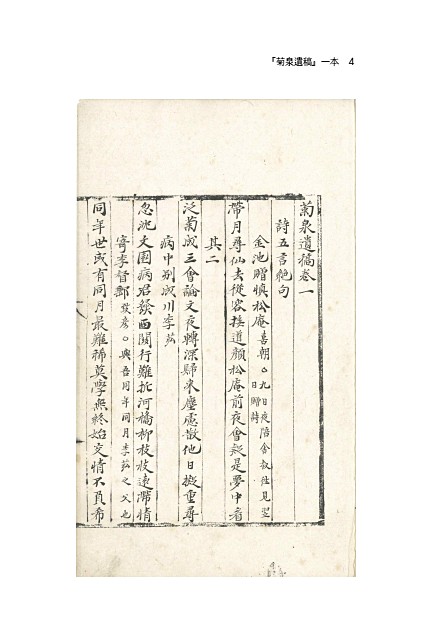 『菊泉遺稿』一本 4
菊泉遺稿卷一
詩五言絶句
金池贈愼松庵喜朝○九日夜陪舍叔往見翌日贈詩
帶月尋仙去從容接道顔松庵前夜會疑是夢中看
其二
泛菊成三會論文夜轉深歸來塵慮散他日擬重尋
病中別成川李
忽 文園病君發西關行難折河橋柳枝枝遠滯情
寄李督郵 彦○與吾同年同月李 之父也
同年世或有同月最難稀莫學無終始交情不負希